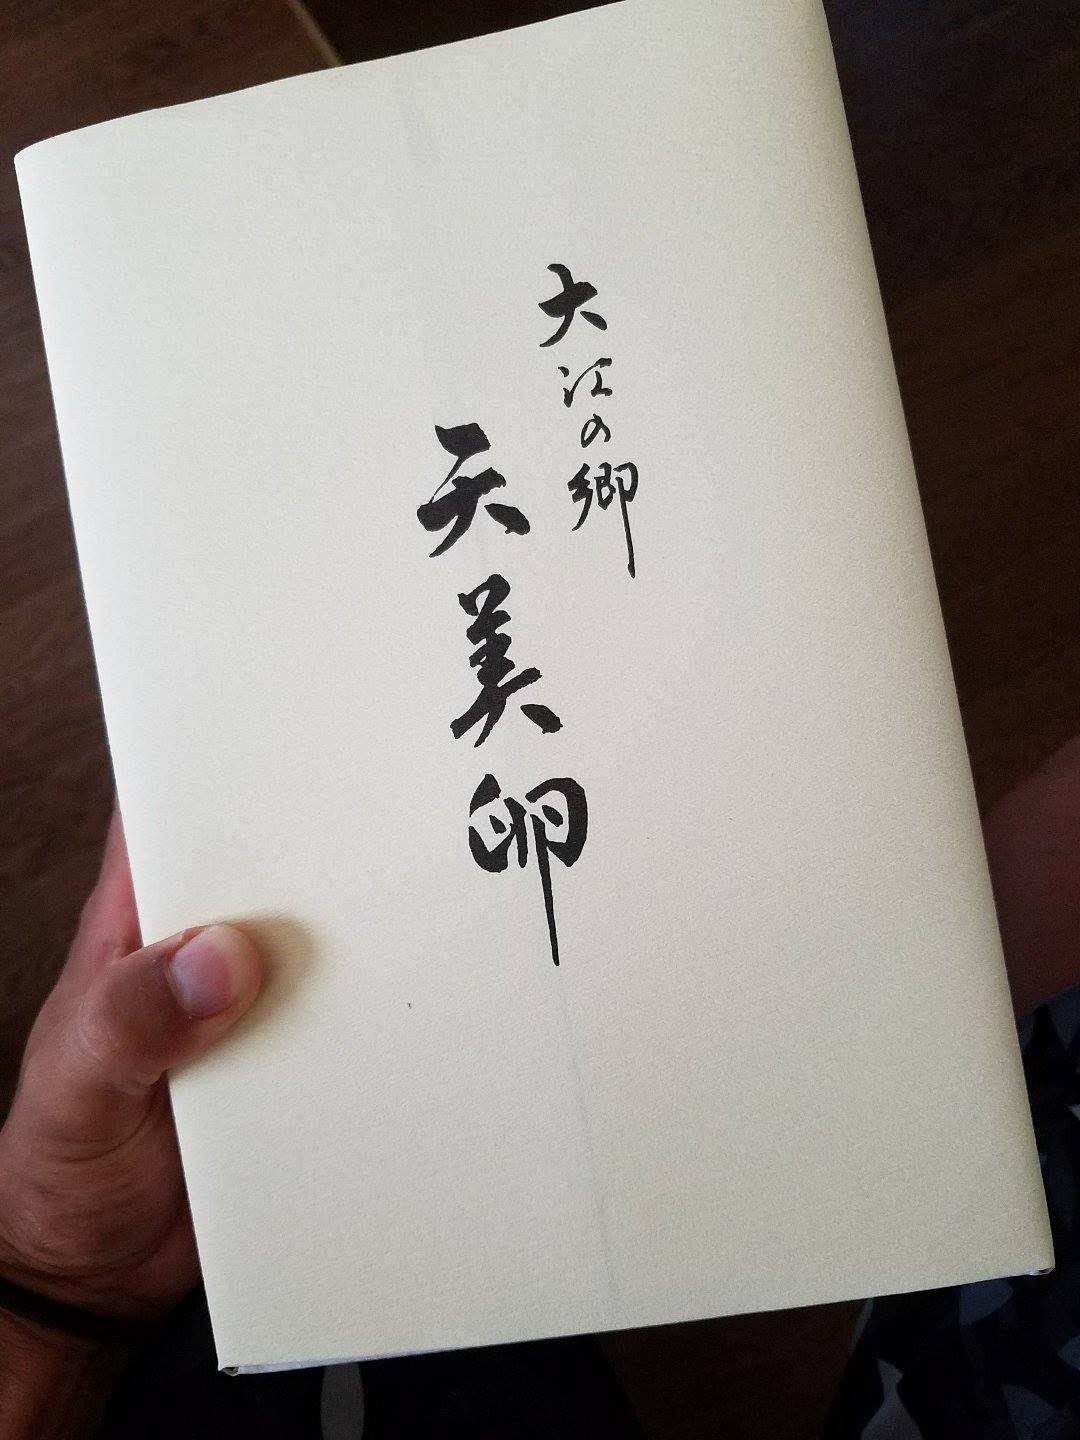 大江の郷
天美卵